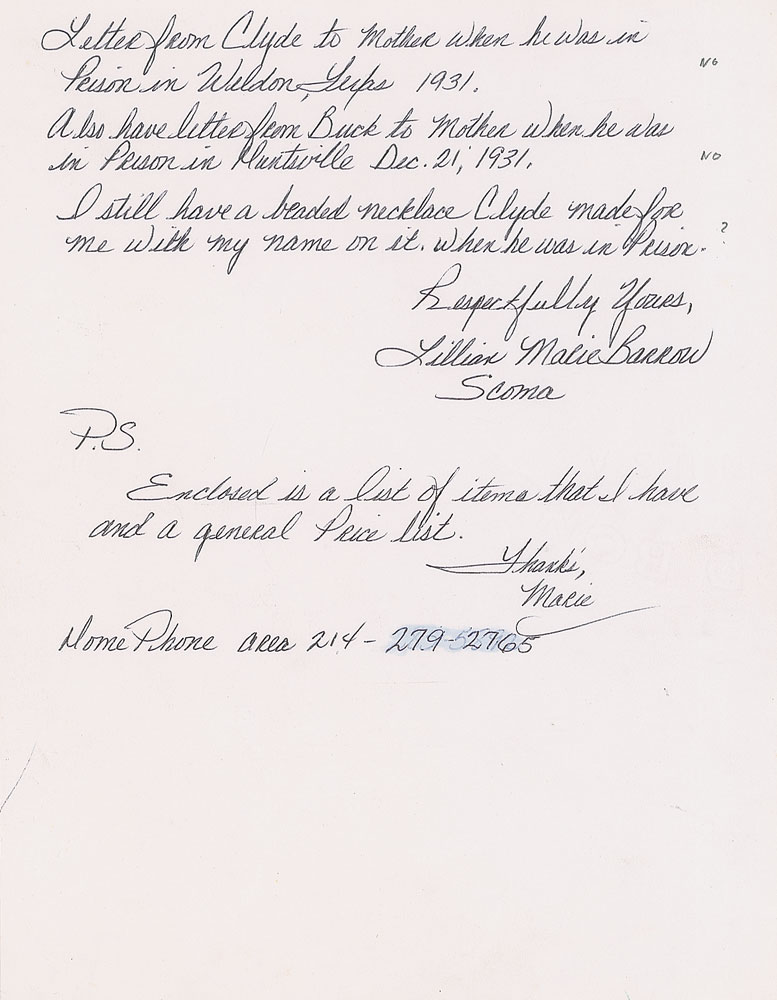 Letter from Clyde to Mother when he was in
NO
Prison in Weldon, 1931.
Also have letter from Buck to Mother when he was
in Prison in Huntsville Dec. 21, 1931.
NO
I still have a beaded necklace Clyde made for
?
me with my name on it. when he was in Prison.
Respectfully Yours,
Lillian Marie Barrow
Scoma
P.S.
Enclosed is a list of items that I have
and a general Price list.
Thanks,
Marie
Home Phone area 214- 279-52765